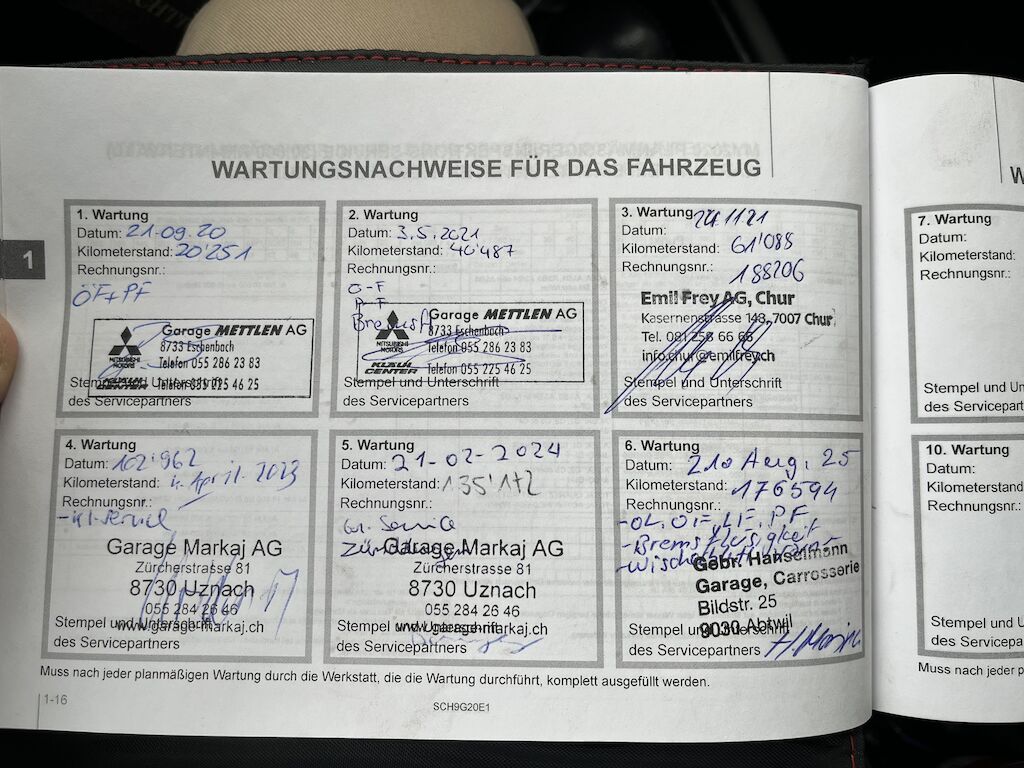 WARTUNGSNACHWEISE FÜR DAS FAHRZEUG
1
1. Wartung
Datum: 21.09.20
Kilometerstand: 20'251
Rechnungsnr.:
ÖF+PF
Garage METTLEN AG
8733 Eschenbach
Telefon 055 286 23 83
MITSUBISHI MOTORS
Telefon 055 225 46 25
Stempel und Unterschrift
des Servicepartners
2. Wartung
Datum: 3.5.2021
Kilometerstand: 40'487
Rechnungsnr.:
O-F
P-F
Bremsfl
Garage METTLEN AG
8733 Eschenbach
Telefon 055 286 23 83
MITSUBISHI MOTORS
CENTER
Telefon 055 225 46 25
Stempel und Unterschrift
des Servicepartners
3. Wartung
Datum: 24.11.21
Kilometerstand: 61'088
Rechnungsnr.:
188206
Emil Frey AG, Chur
Kasernenstrasse 148, 7007 Chur
Tel. 081 256 66 66
info.chur@emilfrey.ch
Stempel und Unterschrift
des Servicepartners
4. Wartung
Datum: 102'962
Kilometerstand: 4. April. 2023
Rechnungsnr.:
-kl. Service
Garage Markaj AG
Zürcherstrasse 81
8730 Uznach
055 284 26 46
www.garage-markaj.ch
Stempel und Unterschrift
des Servicepartners
5. Wartung
Datum: 21-02-2024
Kilometerstand: 135'172
Rechnungsnr.:
Gr. Service
Garage Markaj AG
Zürcherstrasse 81
8730 Uznach
055 284 26 46
www.garage-markaj.ch
Stempel und Unterschrift
des Servicepartners
6. Wartung
Datum: 21. Aug. 25
Kilometerstand: 176594
Rechnungsnr.:
-ÖL, ÖF, LF, PF
-Bremsflüsigkeit
Gebr. Hanselmann
Garage, Carrosserie
Bildstr. 25
9030 Abtwil
Stempel und Unterschrift
des Servicepartners
Muss nach jeder planmäßigen Wartung durch die Werkstatt, die die Wartung durchführt, komplett ausgefüllt werden.
1-16
SCH9G20E1
W
7. Wartung
Datum:
Kilometerstand:
Rechnungsnr.:
Stempel und Un
des Servicepart
10. Wartung
Datum:
Kilometerstand
Rechnungsnr.:
Stempel und Un
des Servicepa
Muss nach jeder p